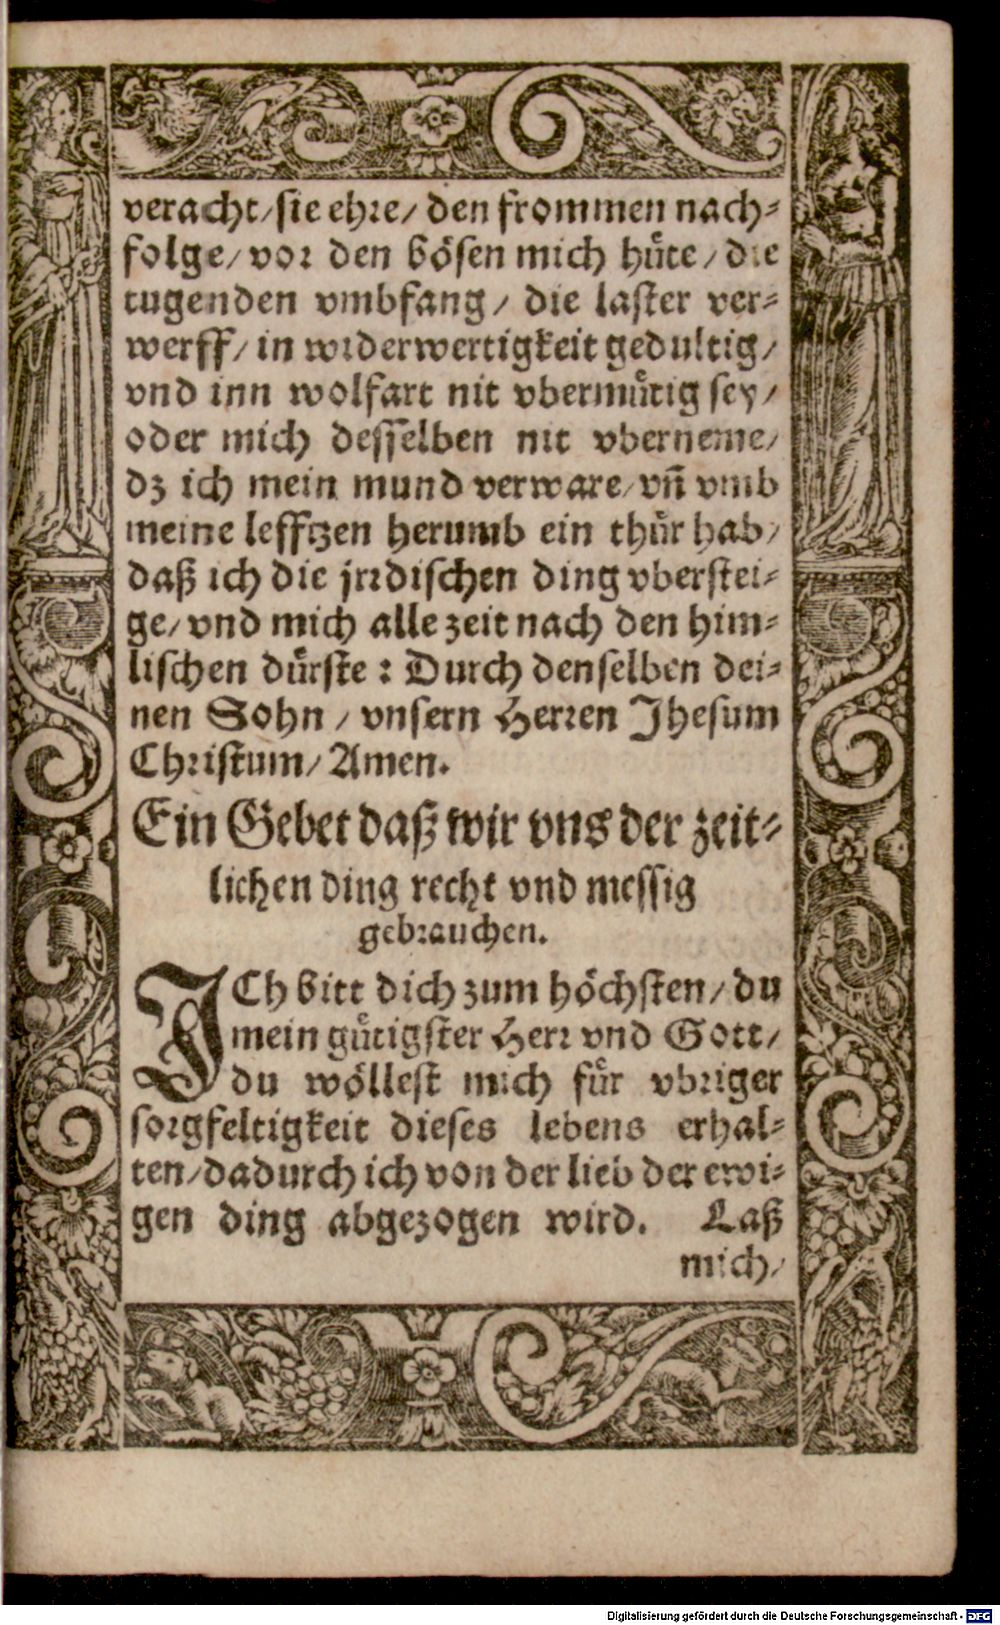 veracht/ sie ehre/ den frommen nach⸗
folge/ vor den bösen mich hüte/ die
tugenden vmbfang/ die laster ver⸗
werff/ in widerwertigkeit gedultig/
vnd inn wolfart nit vbermütig sey/
oder mich desselben nit vberneme/
dz ich mein mund verware/ vñ vmb
meine lefftzen herumb ein thür hab/
daß ich die jrdischen ding vberstei⸗
ge/ vnd mich alle zeit nach den him⸗
lischen dürste: Durch denselben dei⸗
nen Sohn/ vnsern Herren Jhesum
Christum/ Amen.
Ein Gebet daß wir vns der zeit⸗
lichen ding recht vnd messig
gebrauchen.
ICh bitt dich zum höchsten/ du
mein gütigster Herr vnd Gott/
du wöllest mich für vbriger
sorgfeltigkeit dieses lebens erhal⸗
ten/ dadurch ich von der lieb der ewi⸗
gen ding abgezogen wird. Laß
mich/
Digitalisierung gefördert durch die Deutsche Forschungsgemeinschaft - DFG